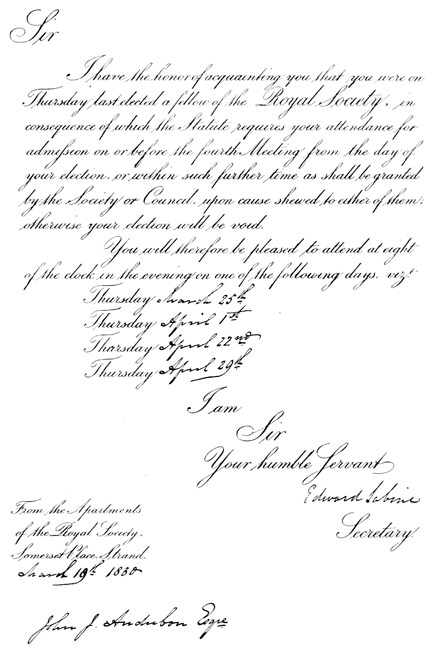 Sir
I have the honor of acquainting you that you were on
Thursday last elected a fellow of the Royal Society, in
consequence of which the Statute requires your attendance for
admission on or before the fourth Meeting from the day of
your election, or within such further time as shall be granted
by the Society or Council, upon cause shewed to either of them;
otherwise your election will be void.
You will therefore be pleased to attend at eight
of the clock in the evening on one of the following days. vizt.
Thursday March 25th
Thursday April 1st
Thursday April 22nd
Thursday April 29th
I am
Sir
Your humble Servant
Edward Sabine
Secretary.
From the Apartments
of the Royal Society.
Somerset Place Strand.
March 19th 1830
John J. Audubon Esqre